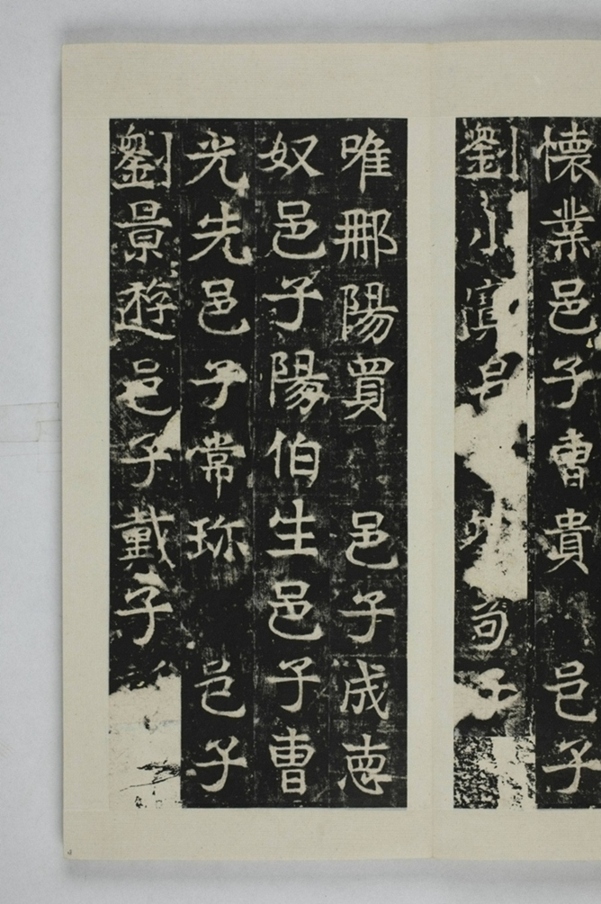 懐業邑子曺貴 邑子
劉小
唯那陽買 邑子成恵
奴邑子陽伯生邑子曺
光先邑子常珎 邑子
劉景遊邑子戴子